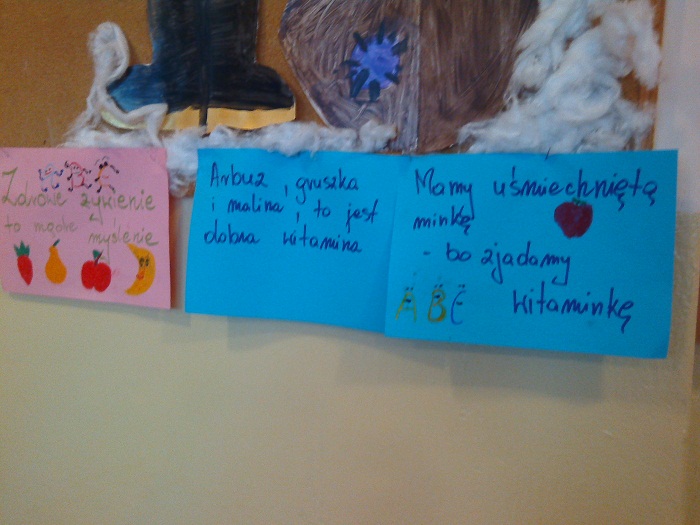 Zdrowe żywienie
to mądre myślenie
Arbuz, gruszka
i malina, to jest
dobra witamina
Mamy uśmiechniętą
minkę
- bo zjadamy
ABC witaminkę